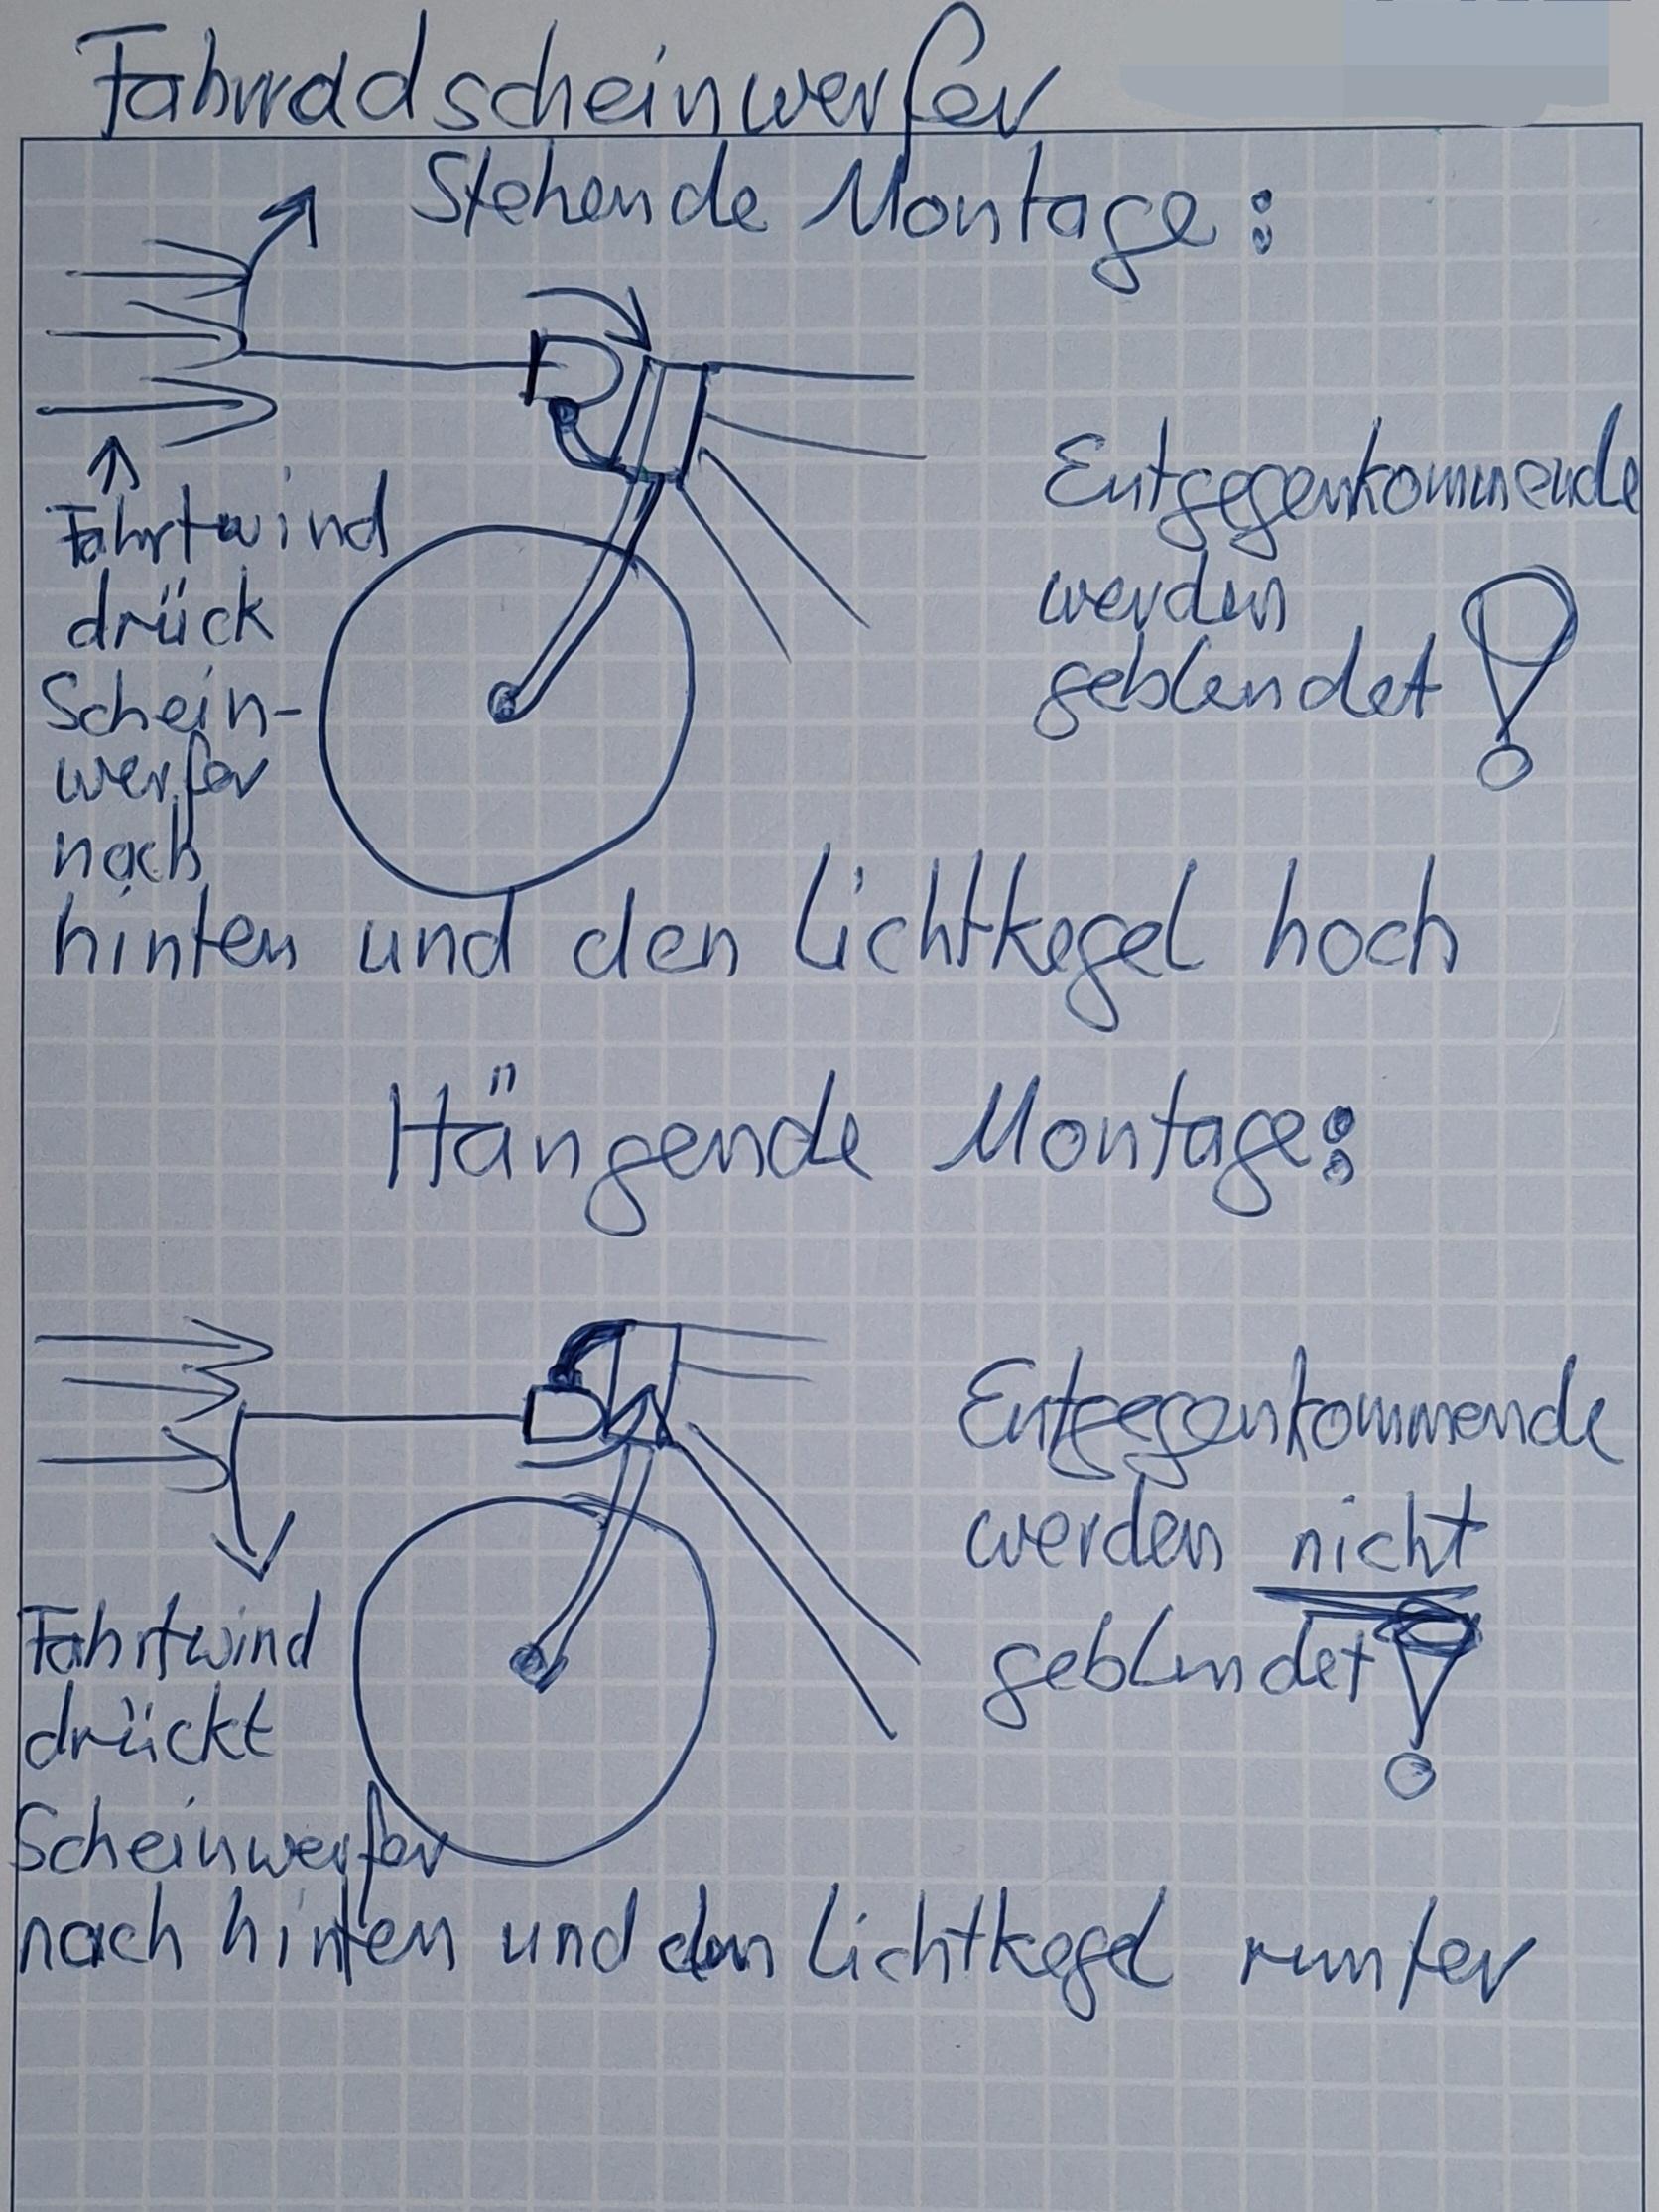 Fahrradscheinwerfer
Stehende Montage:
Fahrtwind
drück
Schein-
werfer
nach
hinten und den Lichtkegel hoch
Entgegenkommende
werden
geblendet!
Hängende Montage:
Entgegenkommende
werden nicht
geblendet!
Fahrtwind
drückt
Scheinwerfer
nach hinten und den Lichtkegel runter